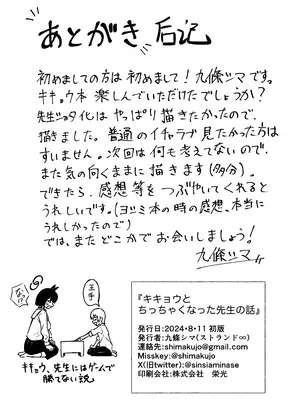 あとがき 后记
初めましての方は初めまして!九條シマです。
キキョウ本楽しんでいただけたでしょうか?
先生ショタ化はやっぱり描きたかったので
描きました。普通のイチャラブ見たかった方は
すいません。次回は何も考えてないので、
また気の向くままに描きます(多分)。
できたら、感想等をつぶやいてくれると
うれしいです。(ヨツミ本の時の感想、本当に
うれしかったので)
では、またどこかでお会いしましょう!
九條シマ
王手
キキョウ、先生にはゲームで
勝てない説
『キキョウと
ちっちゃくなった先生の話』
発行日:2024・8・11 初版
発行者:九條シマ(ストランド∞)
連絡先:shimakujo@gmail.com
Misskey:@shimakujo
X(旧twitter):@sinsiaminase
印刷会社:株式会社 栄光